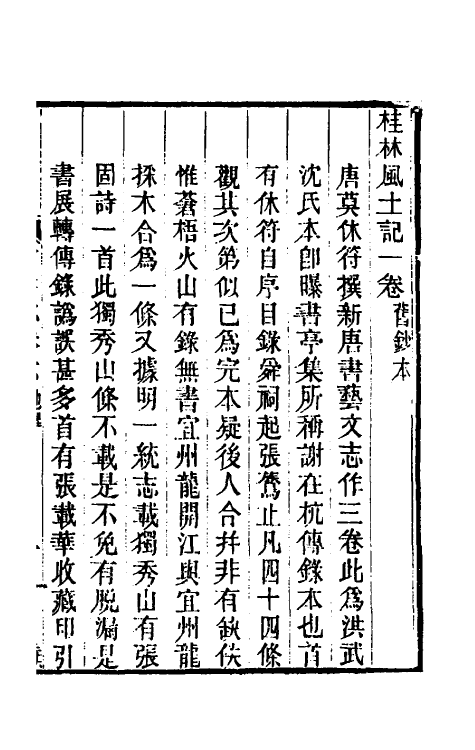 桂林風土記一卷 舊鈔本
唐莫休符撰新唐書藝文志作三卷此爲洪武
沈氏本卽曝書亭集所稱謝在杭傳錄本也首
有休符自序目錄舜祠起張鷟止凡四十四條
觀其次第似已爲完本疑後人合幷非有缺佚
惟蒼梧火山有錄無書宜州龍開江與宜州龍
採木合爲一條又據明一統志載獨秀山有張
固詩一首此獨秀山條不載是不免有脫漏是
書展轉傳錄譌誤甚多首有張載華收藏印引